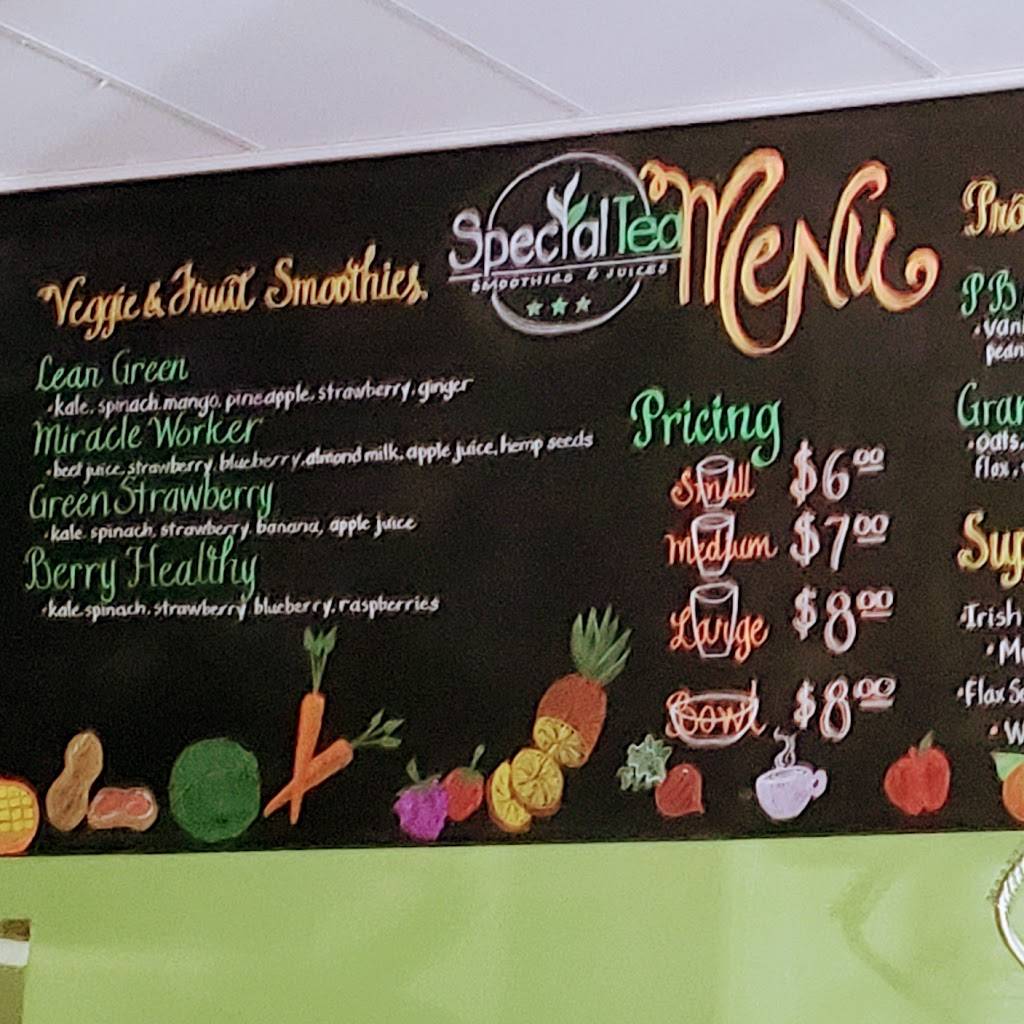 SpecialTea
SMOOTHIES & JUICES
Menu
Veggie & Fruit Smoothies
Lean Green
•kale, spinach, mango, pineapple, strawberry, ginger
Miracle Worker
•beet juice, strawberry, blueberry, almond milk, apple juice, hemp seeds
Green Strawberry
•kale, spinach, strawberry, banana, apple juice
Berry Healthy
•kale, spinach, strawberry, blueberry, raspberries
Pricing
Small $6.00
Medium $7.00
Large $8.00
Bowl $8.00
Pro
PB
•vani
pean
Gran
•oats,
flax,
Sup
•Irish
•M
•Flax Se
•W